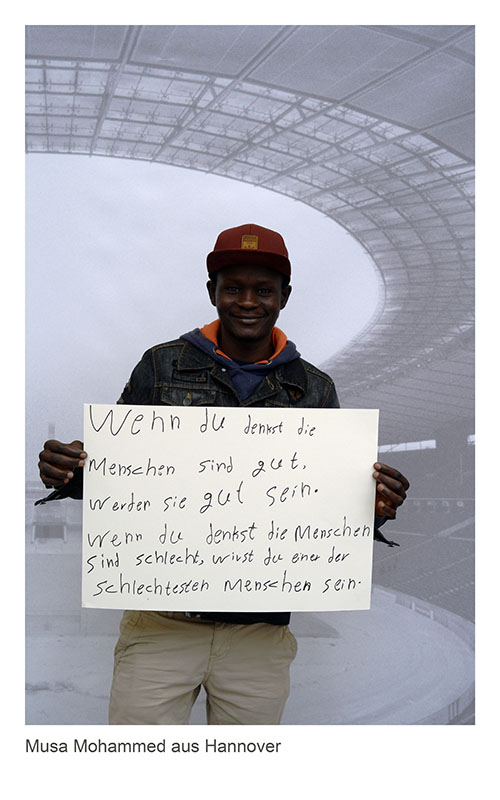 Wenn du denkst die
Menschen sind gut,
werden sie gut sein.
Wenn du denkst die Menschen
sind schlecht, wirst du einer der
schlechtesten Menschen sein.
Musa Mohammed aus Hannover